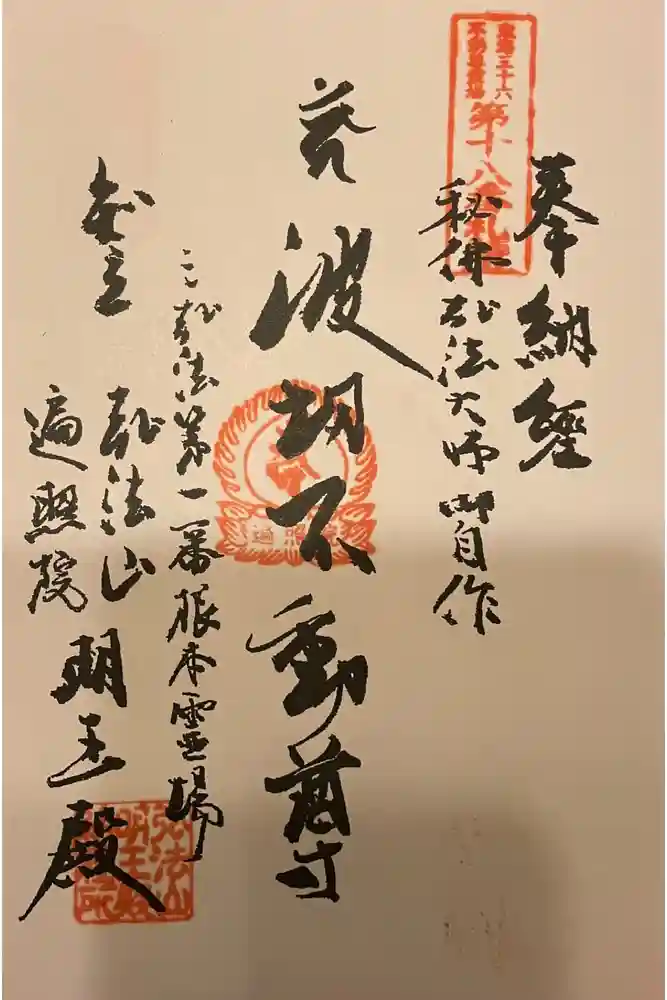 奉納經
東海三十六
不動尊霊場
第十八番札所
秘佛弘法大師御自作
波切不動尊
三弘法第一番根本霊場
知立
弘法山
遍照院
明王殿
弘法山
明王殿